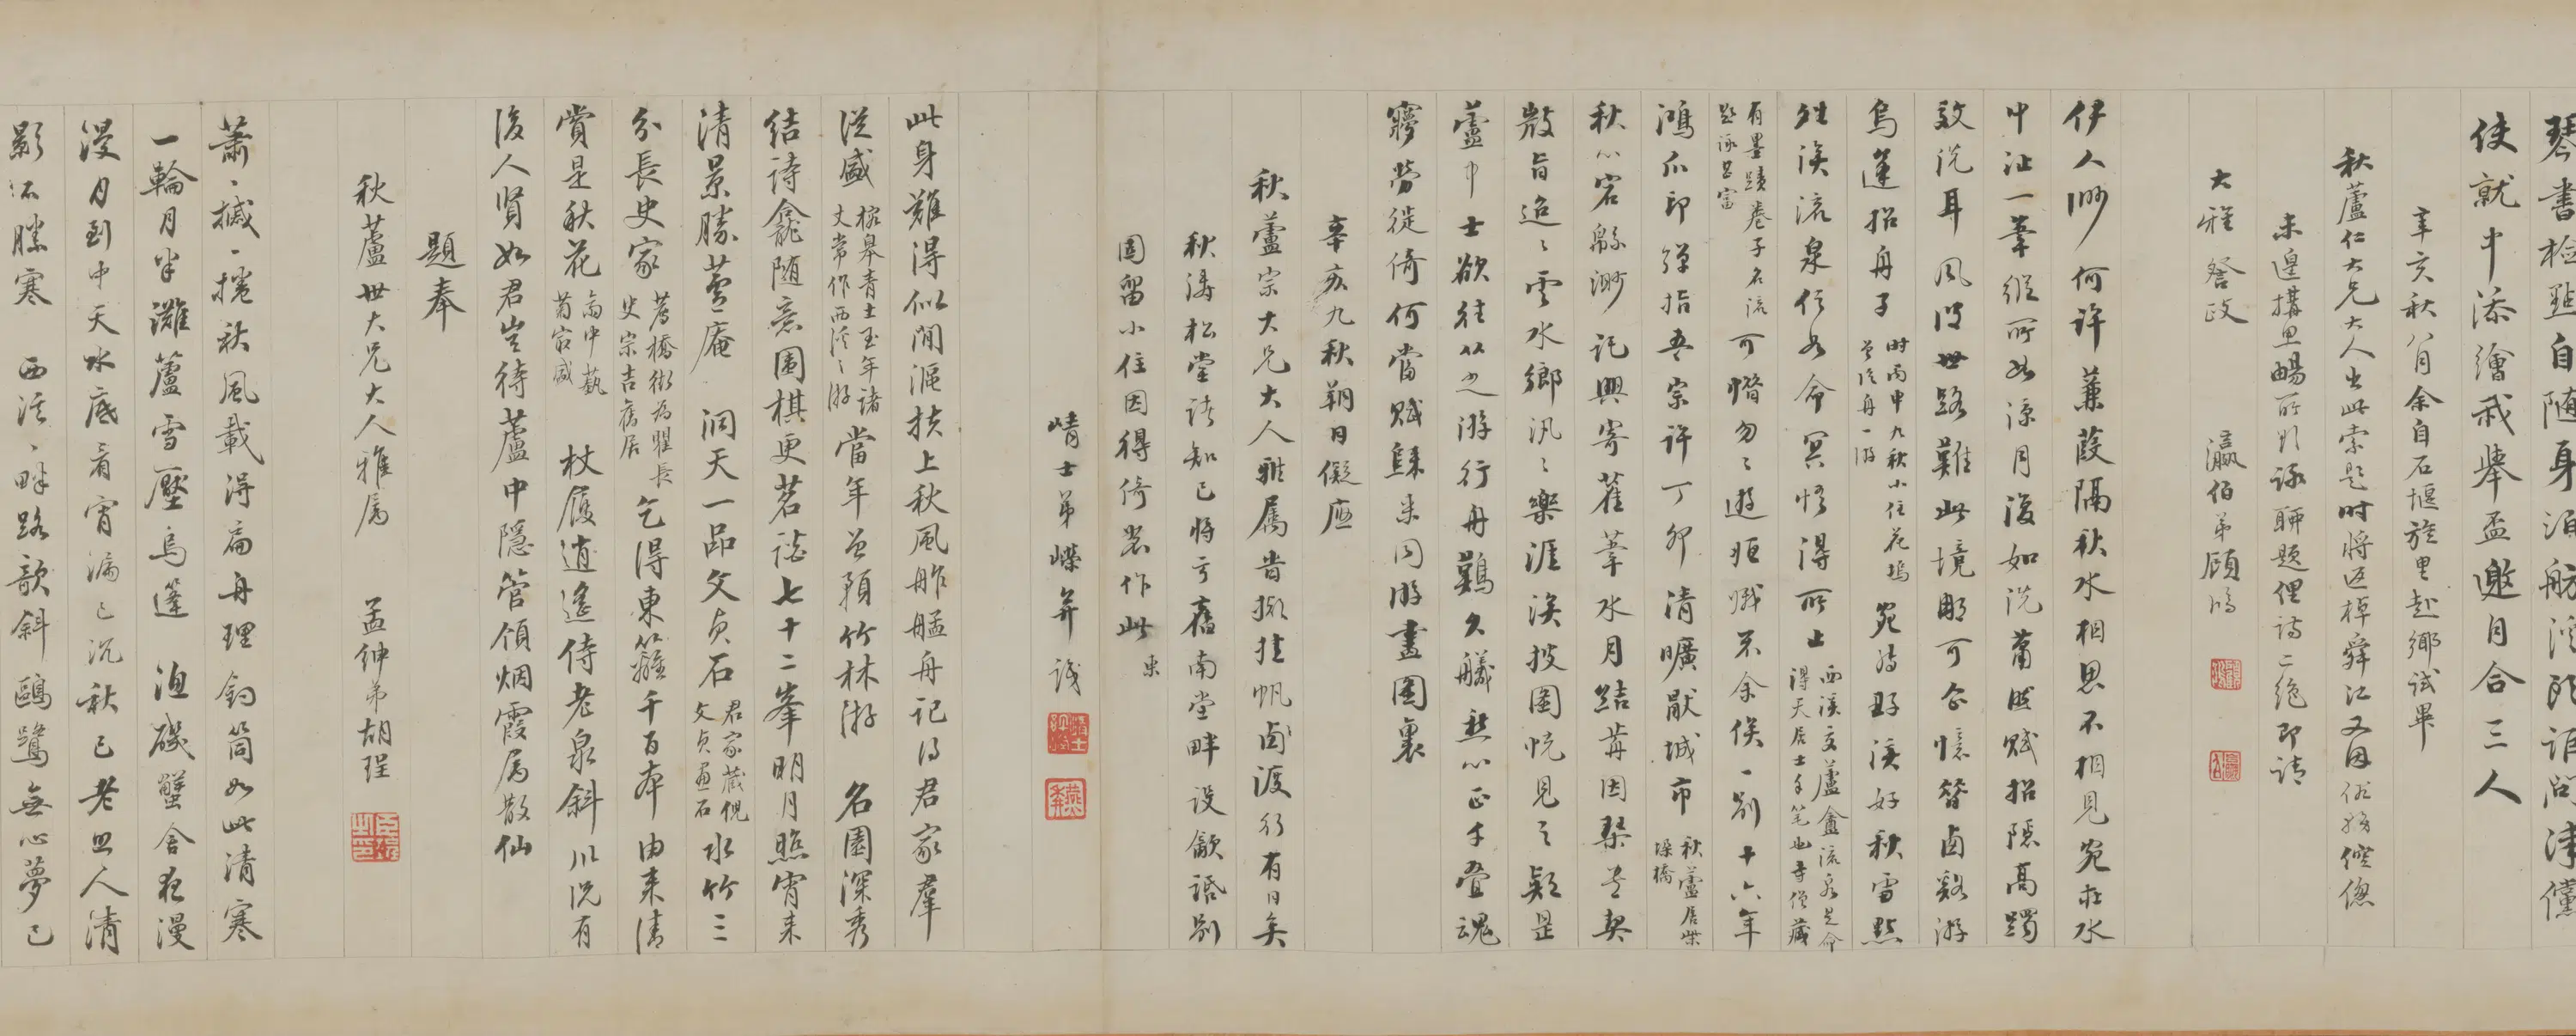 琴書檢點自隨身泊舫溪頭誰問津儻
使就中添繪我舉盃邀月合三人
辛亥秋八月余自石堰旋里赴鄉試畢
秋蘆仁大兄大人出此索題時將返棹舜江又因俗務倥傯
未遑搆思暢所欲詠聊題俚詩二絕即請
大雅督政 瀛伯弟顧鴻
伊人渺何許蒹葭隔秋水相思不相見宛在水
中沚一葦縱所如涼月復如洗蕭然賦招隱高躅
致洗耳風波世路難此境那可企憶昔西谿游
烏篷招舟子時丙申九秋小住花塢曾從舟一游宛為好溪好秋雪點
殘漢流泉何必令冥悟得所止西溪交蘆盦流泉是命得天居士手笔也寺僧藏
有墨蹟卷子名流題詠甚富可惜匆匆遊恆愧不余俟一別十六年
鴻爪印彈指吾宗許丁卯清曠厭城市秋蘆居柴垛橋
秋心宕緜渺託興寄萑葦水月結苒因琴尊契
散旨迢迢雲水鄉汎汎樂涯涘披圖怳見之疑是
蘆中士欲往從之游行舟鷄久艤愁心正千疊魂
夢勞徙倚何當賦歸來同游畫圖裏
辛亥九秋朔日儗應
秋蘆宗大兄大人雅屬昔擬挂帆西渡行有日矣
秋濤松堂諸知已將于舊南堂畔設飲話別
固留小住因得倚裝作此 東
晴士弟嶸并識
此身難得似閒漚扶上秋風舴艋舟記得君家羣
從盛榕皋青士玉年諸丈常作西溪之游當年曾預竹林游 名園深秀
結詩龕随意圍棋更茗談七十二峯明月照宵来
清景勝蘆庵 洞天一品文貞石君家藏倪文貞画石水竹三
分長史家薦橋街為瞿長史宗吉舊居乞得東籬千百本由来清
賞是秋花齋中藝菊最盛 杖履逍遙侍老泉斜川況有
後人賢如君豈待蘆中隱管領烟霞屬散仙
題奉
秋蘆世大兄大人雅屬 孟紳弟胡珵
蕭蕭摵摵捲秋風載得扁舟理釣筒如此清寒
一輪月半灘蘆雪壓烏篷 漁磯蟹舍夜漫
漫月到中天水底看宵漏已沉秋已老四人清
影不勝寒 西溪溪畔路欹斜鷗鷺無心夢已